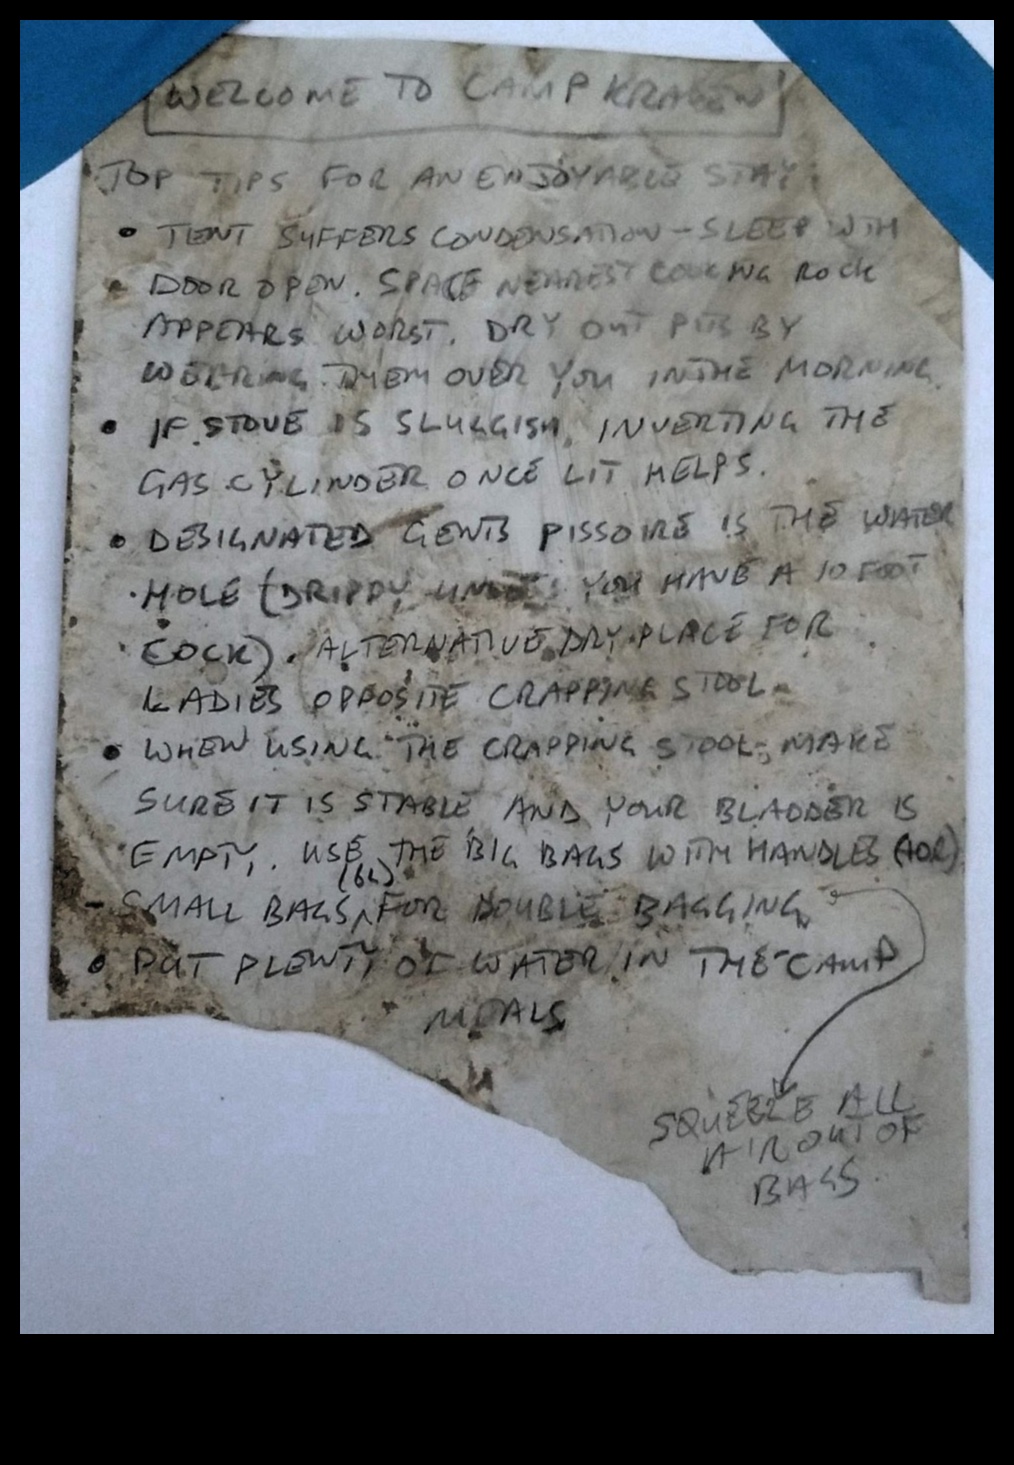 WELCOME TO CAMP KRAKEN
TOP TIPS FOR AN ENJOYABLE STAY:
• TENT SUFFERS CONDENSATION - SLEEP WITH
DOOR OPEN. SPACE NEAREST COOKING ROCK
APPEARS WORST. DRY OUT PITS BY
WEARING THEM OVER YOU IN THE MORNING.
• IF STOVE IS SLUGGISH, INVERTING THE
GAS CYLINDER ONCE LIT HELPS.
• DESIGNATED GENTS PISSOIRE IS THE WATER
HOLE (DRIPPY UNLESS YOU HAVE A 10 FOOT
COCK). ALTERNATIVE DRY PLACE FOR
LADIES OPPOSITE CRAPPING STOOL.
• WHEN USING THE CRAPPING STOOL, MAKE
SURE IT IS STABLE AND YOUR BLADDER IS
EMPTY. USE THE BIG BAGS WITH HANDLES
(6L)
- SMALL BAGS FOR DOUBLE BAGGING
• PUT PLENTY OF WATER IN THE CAMP
MEALS
SQUEEZE ALL
AIR OUT OF
BAGS.